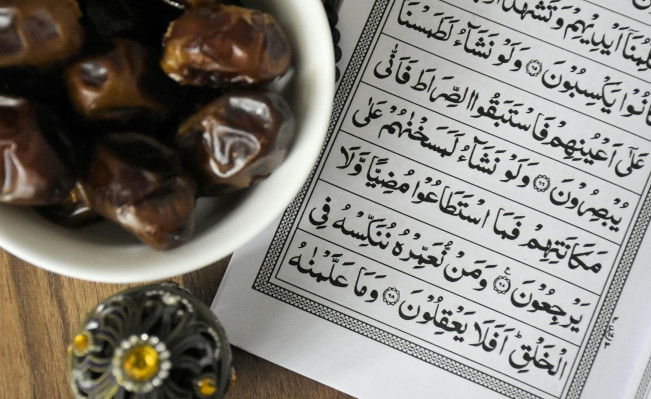 اَيْدِيْهِمْ وَتَشْهَدُ
كَانُوْا يَكْسِبُوْنَ ﴿۶۵﴾ وَلَوْ نَشَآءُ لَطَمَسْنَا
عَلٰٓى اَعْيُنِهِمْ فَاسْتَبَقُوا الصِّرَاطَ فَاَنّٰى
يُبْصِرُوْنَ ﴿۶۶﴾ وَلَوْ نَشَآءُ لَمَسَخْنٰهُمْ عَلٰى
مَكَانَتِهِمْ فَمَا اسْتَطَاعُوْا مُضِيًّا وَّلَا
يَرْجِعُوْنَ ﴿۶۷﴾ وَمَنْ نُّعَمِّرْهُ نُنَكِّسْهُ فِى
الْخَلْقِ ؕ اَفَلَا يَعْقِلُوْنَ ﴿۶۸﴾ وَمَا عَلَّمْنٰهُ